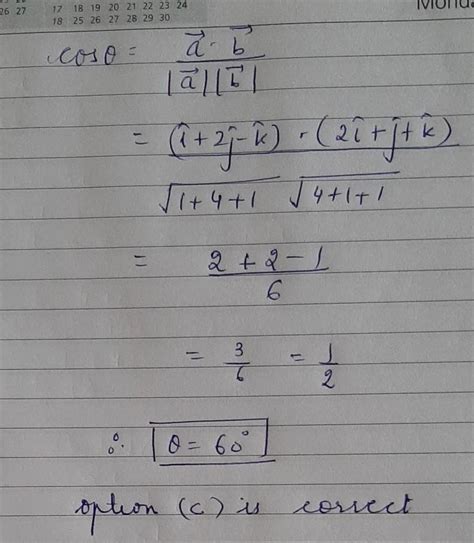 26 27 17 18 19 20 21 22 23 24
18 25 26 27 28 29 30
cosθ = a⃗ · b⃗ / |a⃗| |b⃗|
= (î + 2ĵ - k̂) · (2î + ĵ + k̂) / √1+4+1 √4+1+1
= 2 + 2 - 1 / 6
= 3/6 = 1/2
∴ θ = 60°
option (c) is correct